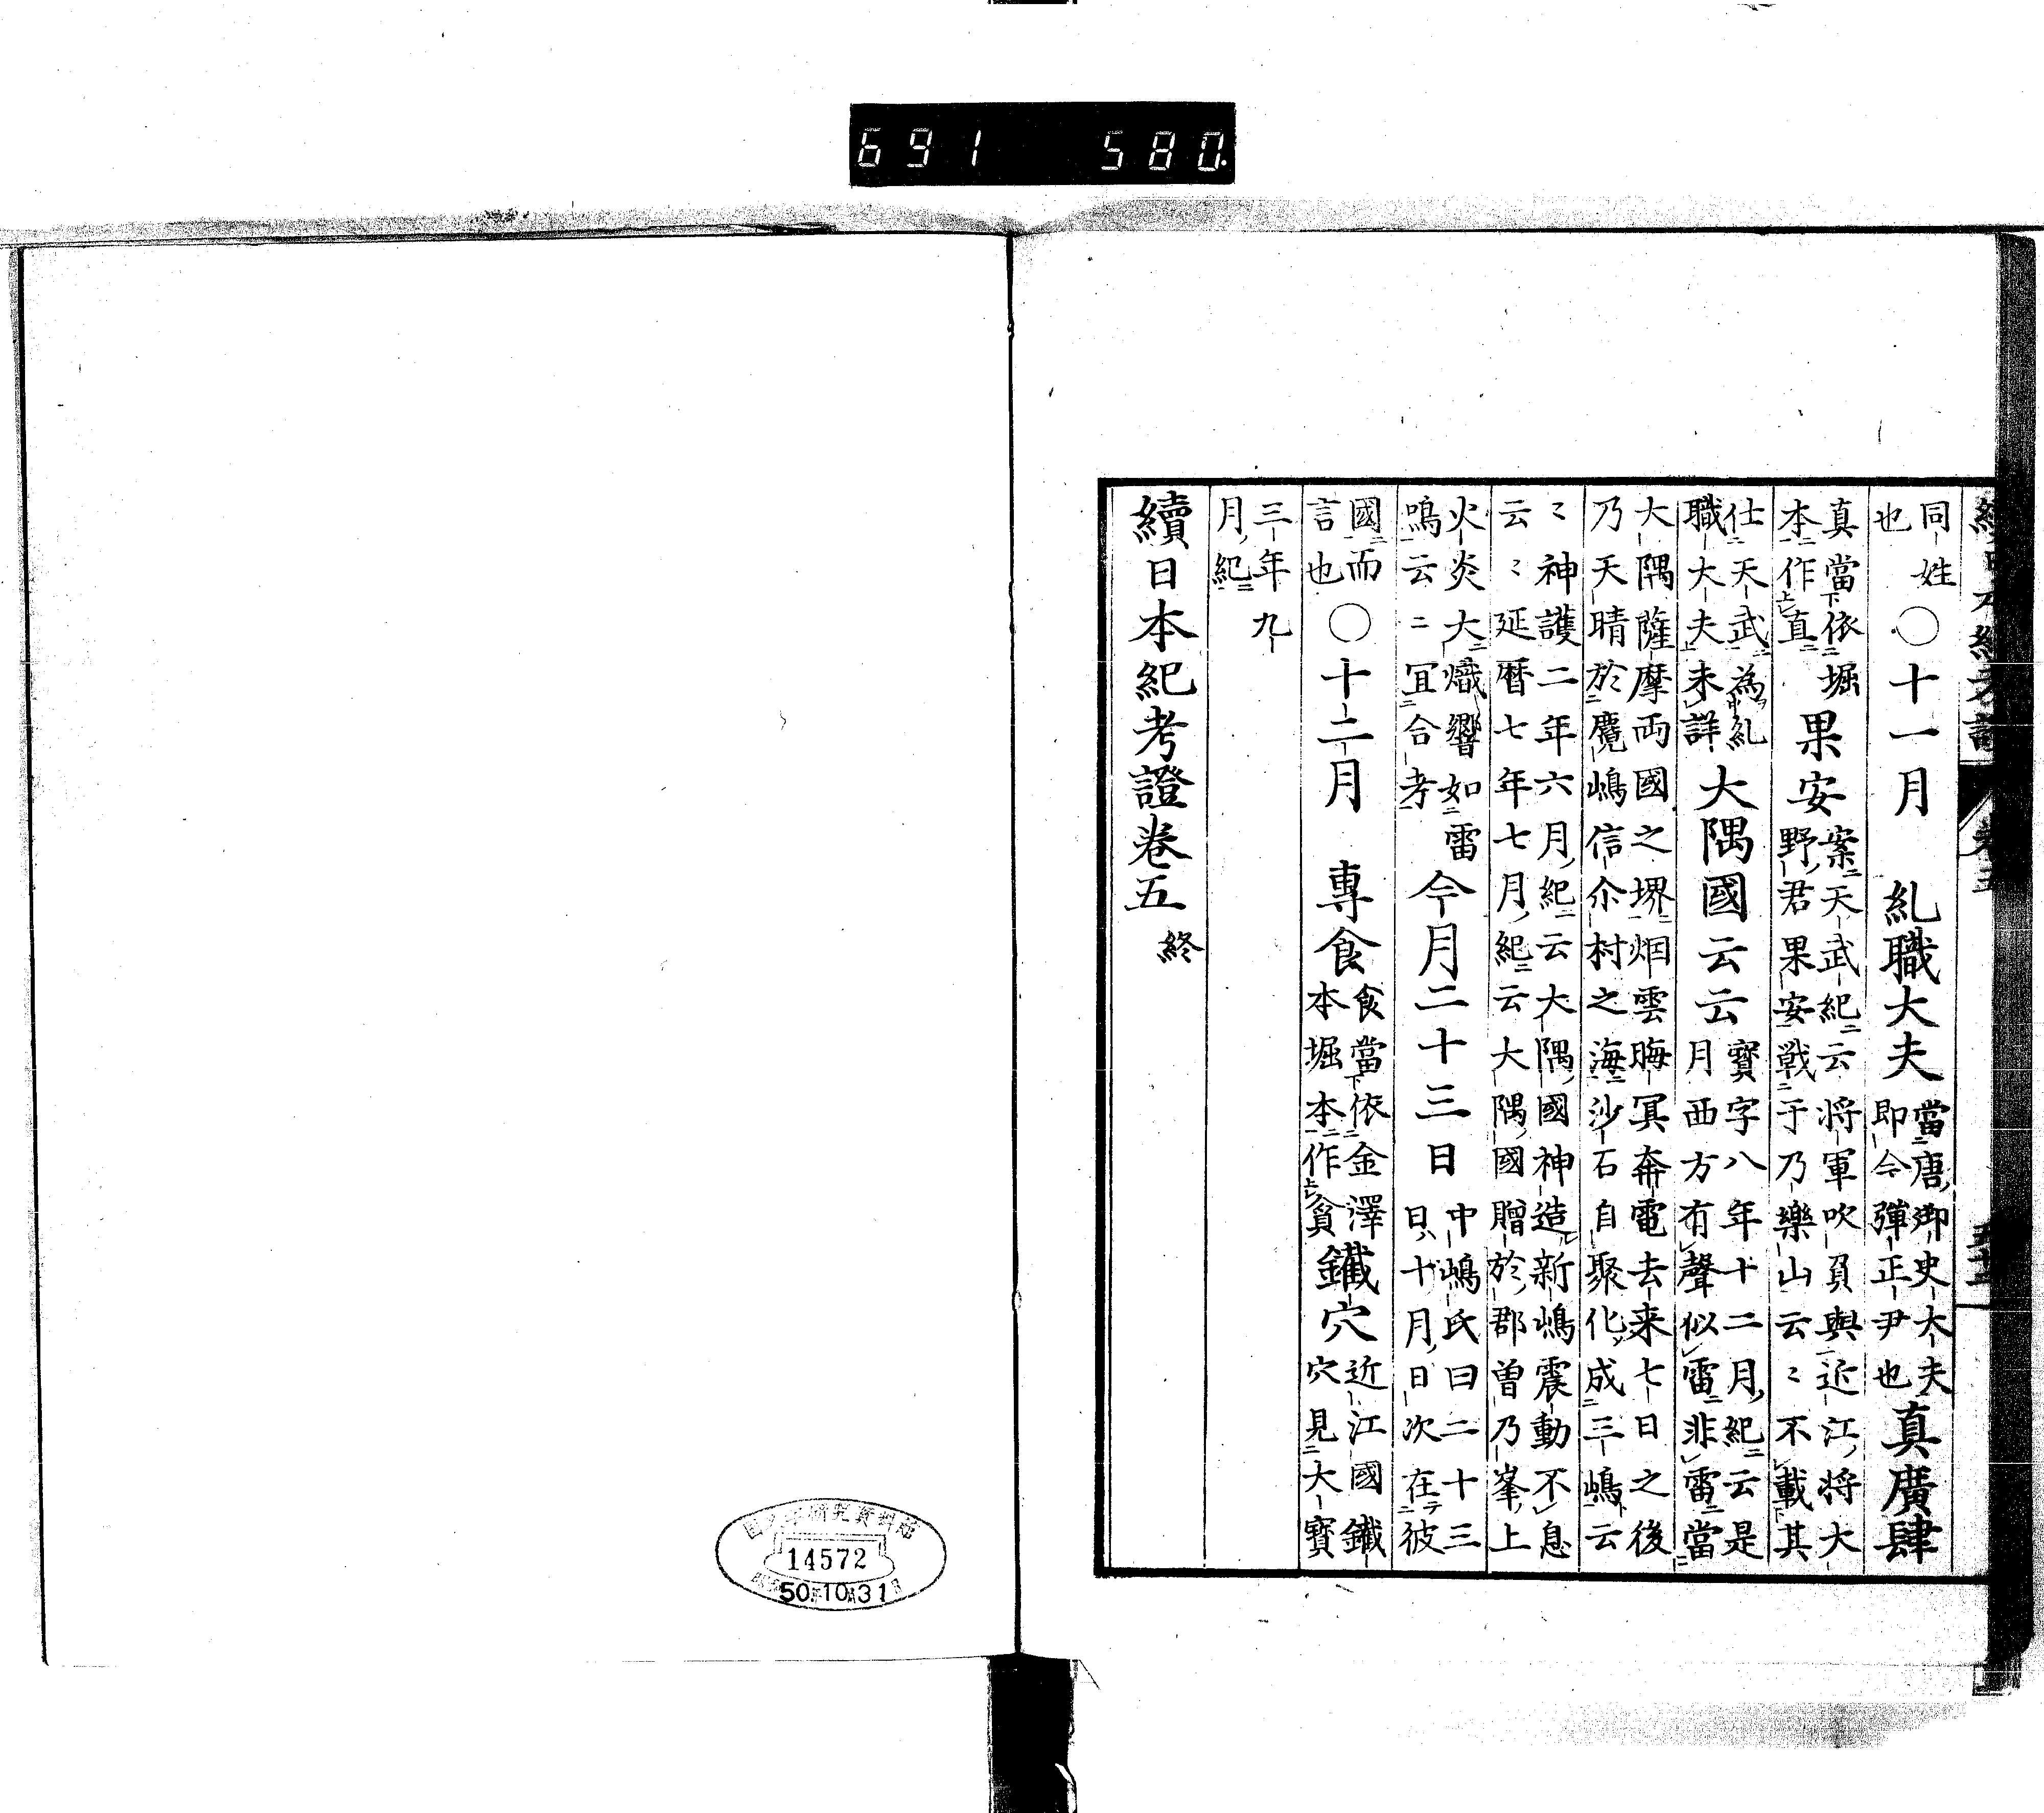 691 580.
同姓
也
○十一月 糺職大夫
當唐御史大夫
即今彈正尹也
真廣肆
真當依堀
本作直
果安
案天武紀云将軍吹負與近江将大
野君果安戦于乃樂山云〻不載其
仕天武為糺
職大夫未詳
大隅國云云
寳字八年十二月紀云是
月西方有聲似雷非雷當
大隅薩摩両國之堺烟雲晦冥奔電去来七日之後
乃天晴於麑嶋信尒村之海沙石自聚化成三嶋云
〻神護二年六月紀云大隅國神造新嶋震動不息
云〻延暦七年七月紀云大隅國贈於郡曽乃峯上
火炎大熾響如雷
鳴云〻冝合考
今月二十三日
中嶋氏曰二十三
日十月日次在彼
國而
言也
○十二月 專食
食當依金澤
本堀本作貧
鐵穴
近江國鐵
穴見大寳
三年九
月紀
續日本紀考證卷五 終
14572
50.10.31